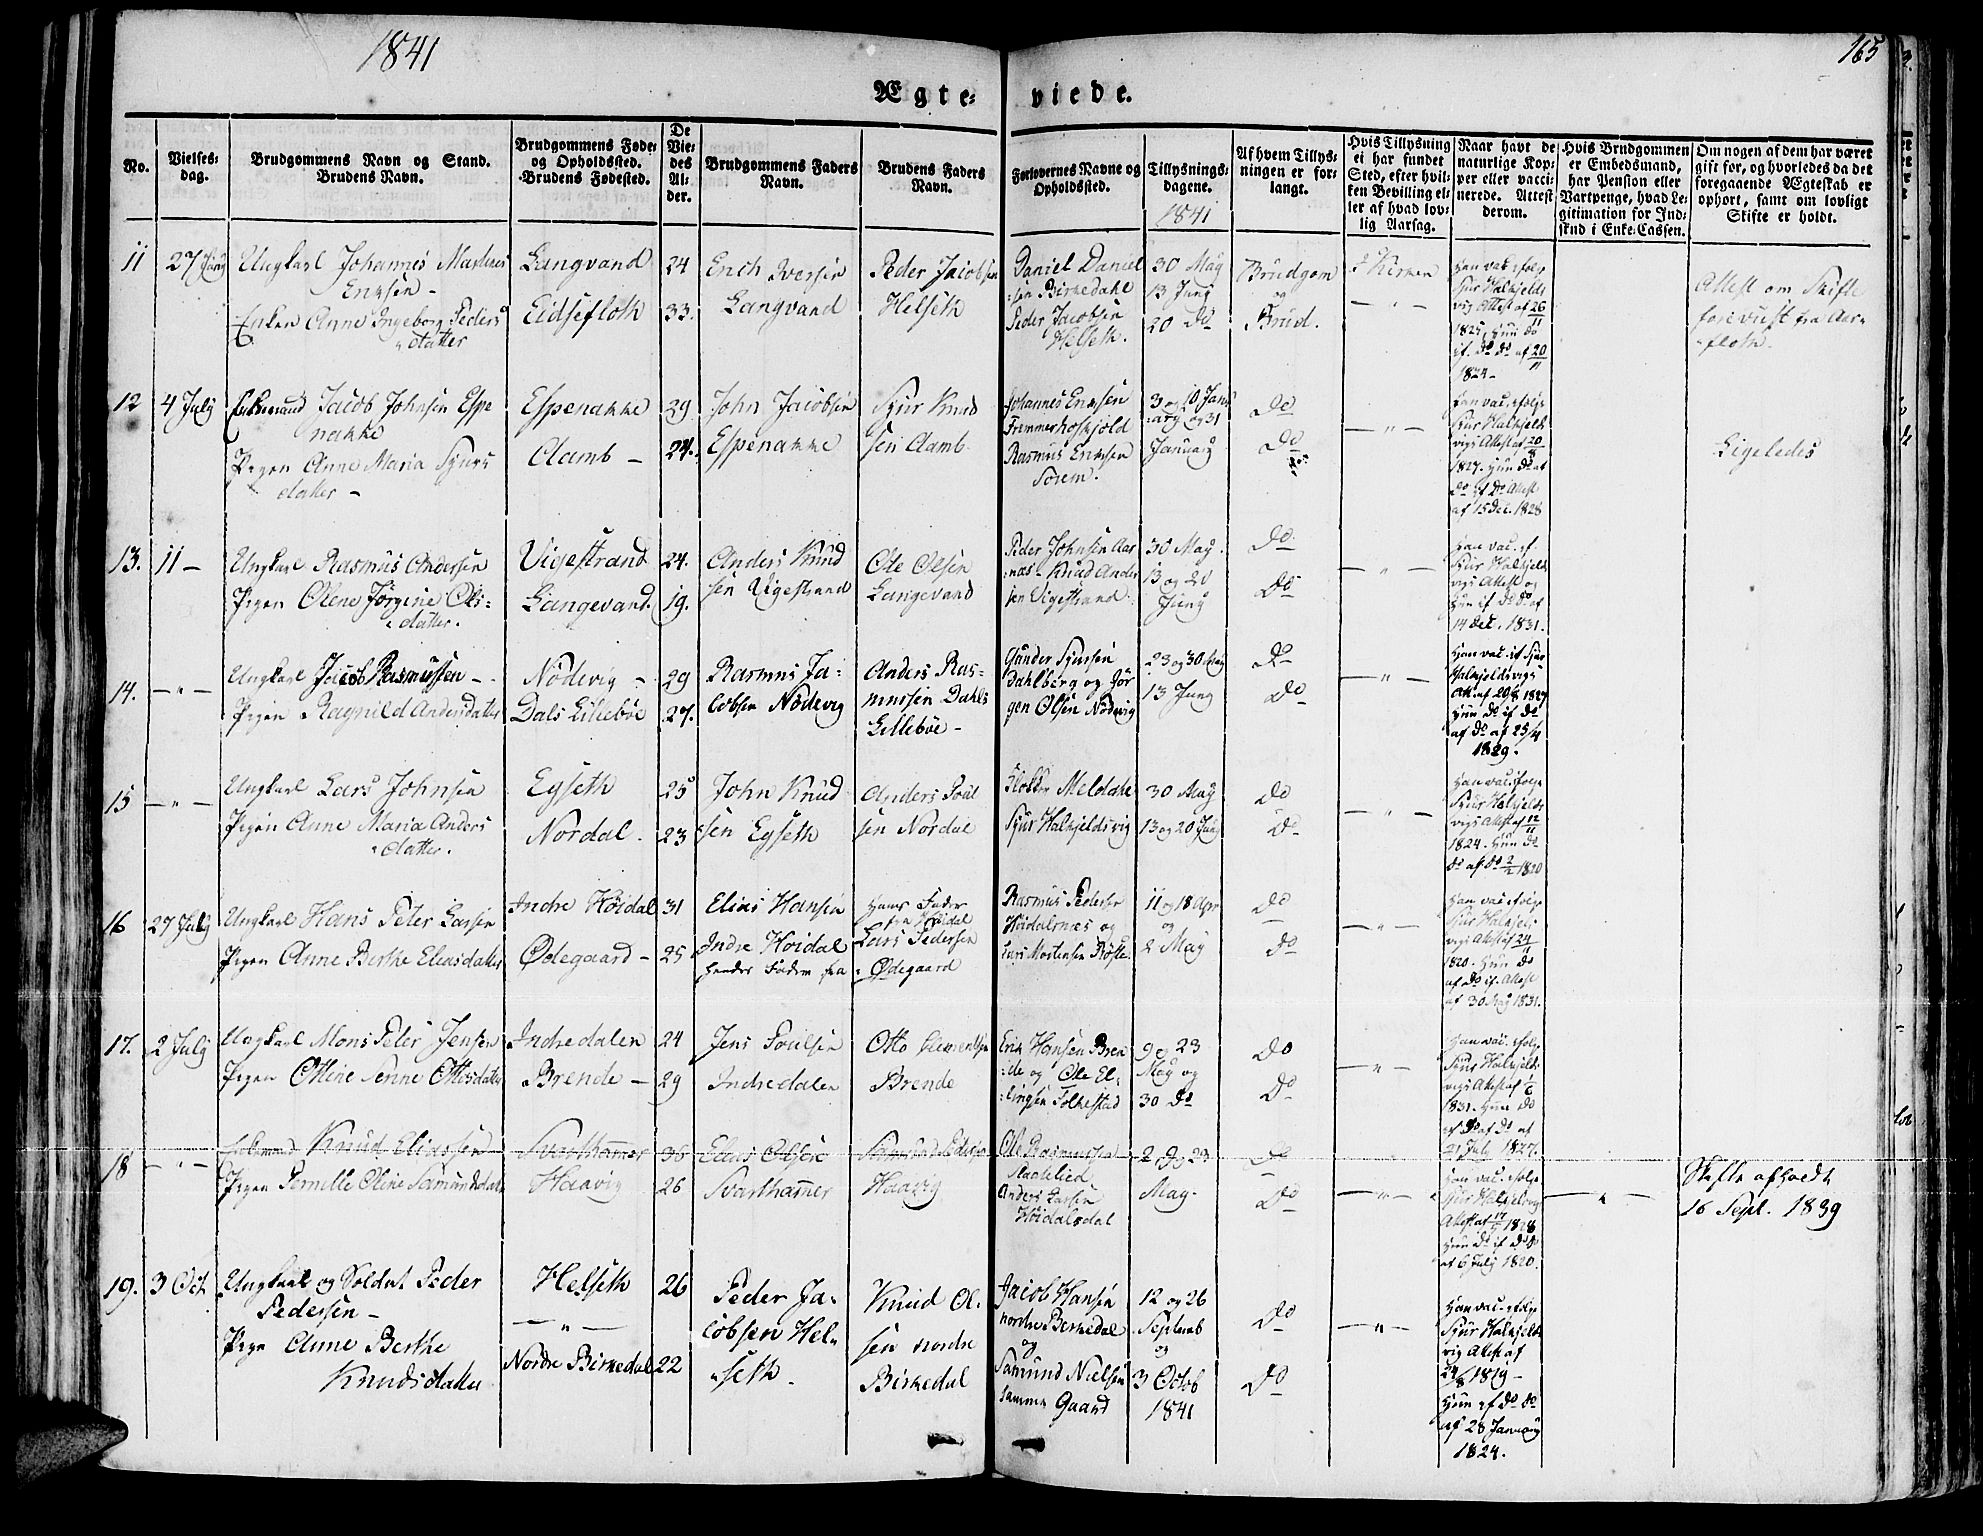 1841
165
Ægteviede.
No.
Vielses-
dag.
Brudgommens Navn og Stand.
Brudens Navn.
Brudgommens Føde-
og Opholdssted.
Brudens Fødested.
De
Vie-
des
Al-
der.
Brudgommens Faders
Navn.
Brudens Faders
Navn.
Forlovernes Navne og
Opholdssted.
Tillysnings-
dagene.
1841
Af hvem Tillys-
ningen er for-
langt.
Hvis Tillysning
ei har fundet
Sted, efter hvil-
ken Bevilling el-
ler af hvad lov-
lig Aarsag.
Naar havt de
naturlige Kop-
per eller vacci-
nerede. Attest
derom.
Hvis Brudgommen
er Embedsmand,
har Pension eller
Vartpenge, hvad Le-
gitimation for Ind-
skud i Enke-Cassen.
Om nogen af dem har været
gift før, og hvorledes da det
foregaaende Ægteskab er
ophørt, samt om lovligt
Skifte er holdt.
11
27 Juny
Ungkarl Johannes Martinus
Ericksen -
Enken Anne Ingeborg Peders
datter
Langvand
Eidsefloth
24
33.
Erich Iversen
Langvand
Peder Jacobsen
Helseth
Daniel Daniel
sen Birkedahl
Peder Jacobsen
Helseth.
30 May
13 Juny
20 do
Brudgom
og
Brud.
I Kirken
- " -
Han vac. ifølge
Sjur Halkjelds
vig Attest af 26/11
1825, Hun do
if. do do af 20/11
1824 -
Attest om Skifte
foreviist fra Aar-
floth.
12
4 July
Enkemand Jacob Johnsen Espe
nakke
Pigen Anne Maria Sjurs
datter -
Espenakke
Aamb -
29
24.
John Jacobsen
Espenakke
Sjur Knud
sen Aamb
Johannes Ericksen
Fremmerhofkjold
Rasmus Ericksen
Sørem.
3 og 10 Janu
ary og 31
January
Do
Do
- " -
Han vac. ifølge
Sjur Halkjelds
vigs Attest af 20/8
1827. Hun do af
do if do Attest
af 15 Dec. 1828
Ligeledes
13.
11 -
Ungkarl Rasmus Andersen
Pigen Olene Jørgine Ols-
datter.
Vigestrand
Langevand.
24.
19.
Anders Knud
sen Vigestrand
Ole Olsen
Langevand
Peder Johnsen Aar
næs - Knud Ander
sen Vigestrand
30 May.
13 og 20
Juny
Do.
Do
- " -
Han vac. if.
Sjur Halkjelds
vigs Attest og
Hun if do do af
14 Dec. 1831.
14.
- " -
Ungkarl Jacob Rasmussen -
Pigen Ragnild Andersdatter
Nødevig -
Dals Lillebøe
29
27.
Rasmus Ja-
cobsen Nødevig
Anders Ras-
mussen Dahls
Lillebøe -
Gunder Sjursen
Dahlberg og Jør
gen Olsen Nødevig
23 og 30 May
13 Juny
Do
Do
- " -
Han vac. if Sjur
Halkjeldsvigs
Att. af 20/8 1827
Hun do if do
af do af 25/4
1829.
15
- " -
Ungkarl Lars Johnsen
Pigen Anne Maria Anders
datter.
Egseth
Nordal.
25
23
John Knud
sen Egseth
Anders Poul
sen Nordal
Klokker Meldahl
Sjur Halkjeldsvig
30 May
13 og 20 Juny
Do
Do
- " -
Han vac. ifølge
Sjur Halkjelds
vigs Attest af 12/11
1824. Hun do
do af do 2/2 1820
16
27 July
Ungkarl Hans Peter Larsen
Pigen Anne Berthe Eliasdatter
Indre Høidal
Ødegaard -
31
25
Elias Hansen
Indre Høidal
hendes Fader fra
Hans Fader
fra Høidal
Lars Pedersen
Ødegaard
Rasmus Pedersen
Høidalsnæs og
Lars Mortensen Røste
11 og 18 Apr
og
2 May
Do
Do
- " -
Han vac. ifølge
Sjur Halkjels
vigs Attest af 24/11
1820. Hun do
af do if. Attest
af 30 Aug 1831.
17.
2 July
Ungkarl Mons Peter Jensen
Pigen Ottine Senne Ottosdatter
Indredalen
Brende -
24
29
Jens Poulsen
Indredalen
Otto Siementsen
Brende
Erik Hansen Bren
de og Ole El-
lingsen Folkestad
9 og 23
May og
30 do
Do
Do
- " -
Han vac. ifølge
Sjur Halkjelds
vigs Attest af 1/6
1831. Hun do
af do af do af
21 July 1827.
18
- " -
Enkemand Knud Eliassen
Pigen Pernille Oline Samundsdatter
Svarthamer
Haavig
36
26
Elias Olsen
Svarthamer
Samund Pedersen
Haavig
Ole Rasmussen
Slaatelied
Anders Larsen
Høidalsdal
2 9 og 23
May.
Do
Do
- " -
Han vac. ifølge
Sjur Halkjeldsvigs
Attest af 17/7 1828
Hun do if do do
af 6 July 1820.
- " -
Skifte afholdt
16 Sept. 1839
19.
3 Oct
Ungkarl og Soldat Peder
Pedersen -
Pigen Anne Berthe
Knudsdatter
Helseth
- " -
Nordre Birkedal
26
22
Peder Ja-
cobsen Hel-
seth -
Knud Ol-
sen nordre
Birkedal
Jacob Hansen
nordre Birkedal
og
Samund Nielsen
samme Gaard
12 og 26
Septemb
og
3 Octob
1841
Do
Do
- " -
Han vac. ifølge
Sjur Halkjelds
vig Attest af
24/8 1819 -
Hun if do do
af 28 January
1824.